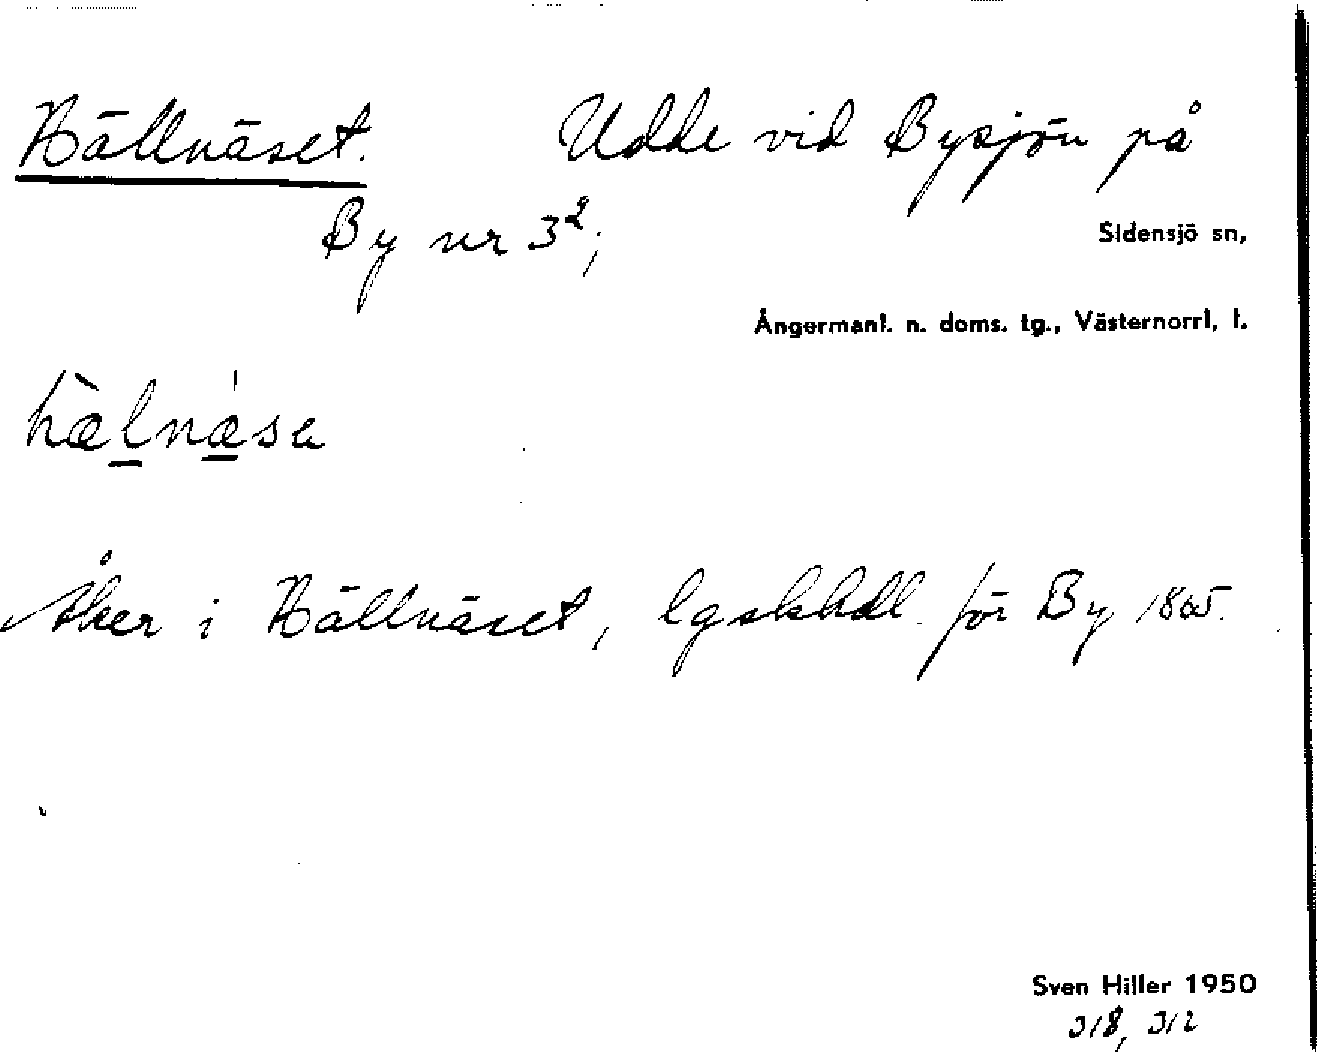 Hällnäset. Udde vid Bysjön på
By nr 3²;
Sidensjö sn,
Ångermanl. n. doms. tg., Västernorrl. l.
hæ̀lnǽsa
Åker i Hällnäset, lgskhdl. för By 1865.
Sven Hiller 1950
318, 312